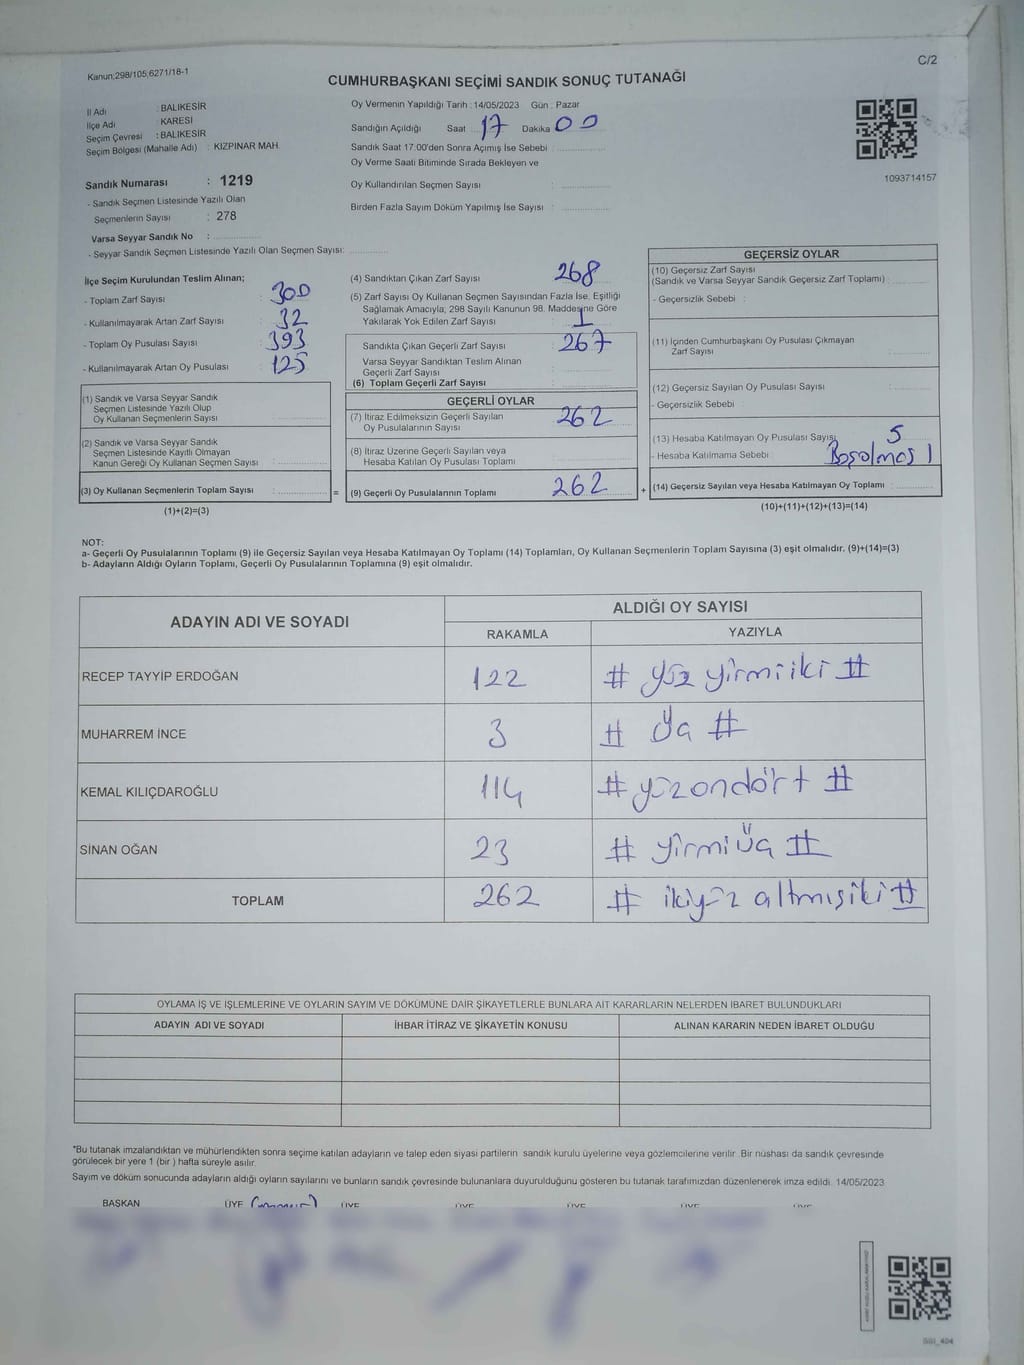 Kanun;298/105;6271/18-1
C/2
CUMHURBAŞKANI SEÇİMİ SANDIK SONUÇ TUTANAĞI
İl Adı : BALIKESİR
İlçe Adı : KARESİ
Seçim Çevresi : BALIKESİR
Seçim Bölgesi (Mahalle Adı) : KIZPINAR MAH.
Sandık Numarası : 1219
- Sandık Seçmen Listesinde Yazılı Olan
Seçmenlerin Sayısı : 278
Varsa Seyyar Sandık No :
- Seyyar Sandık Seçmen Listesinde Yazılı Olan Seçmen Sayısı:
Oy Vermenin Yapıldığı Tarih : 14/05/2023 Gün : Pazar
Sandığın Açıldığı Saat 17 Dakika 00
Sandık Saat 17:00'den Sonra Açımış İse Sebebi :
Oy Verme Saati Bitiminde Sırada Bekleyen ve
Oy Kullandırılan Seçmen Sayısı :
Birden Fazla Sayım Döküm Yapılmış İse Sayısı :
1093714157
İlçe Seçim Kurulundan Teslim Alınan;
- Toplam Zarf Sayısı : 300
- Kullanılmayarak Artan Zarf Sayısı : 32
- Toplam Oy Pusulası Sayısı : 393
- Kullanılmayarak Artan Oy Pusulası : 125
(1) Sandık ve Varsa Seyyar Sandık
Seçmen Listesinde Yazılı Olup
Oy Kullanan Seçmenlerin Sayısı :
(2) Sandık ve Varsa Seyyar Sandık
Seçmen Listesinde Kayıtlı Olmayan
Kanun Gereği Oy Kullanan Seçmen Sayısı :
(3) Oy Kullanan Seçmenlerin Toplam Sayısı :
(1)+(2)=(3)
=
(4) Sandıktan Çıkan Zarf Sayısı : 268
(5) Zarf Sayısı Oy Kullanan Seçmen Sayısından Fazla İse, Eşitliği
Sağlamak Amacıyla; 298 Sayılı Kanunun 98. Maddesine Göre
Yakılarak Yok Edilen Zarf Sayısı : 1
Sandıkta Çıkan Geçerli Zarf Sayısı : 267
Varsa Seyyar Sandıktan Teslim Alınan
Geçerli Zarf Sayısı :
(6) Toplam Geçerli Zarf Sayısı :
GEÇERLİ OYLAR
(7) İtiraz Edilmeksizin Geçerli Sayılan
Oy Pusulalarının Sayısı : 262
(8) İtiraz Üzerine Geçerli Sayılan veya
Hesaba Katılan Oy Pusulası Toplamı :
(9) Geçerli Oy Pusulalarının Toplamı : 262
+
GEÇERSİZ OYLAR
(10) Geçersiz Zarf Sayısı
(Sandık ve Varsa Seyyar Sandık Geçersiz Zarf Toplamı) :
- Geçersizlik Sebebi :
(11) İçinden Cumhurbaşkanı Oy Pusulası Çıkmayan
Zarf Sayısı :
(12) Geçersiz Sayılan Oy Pusulası Sayısı :
- Geçersizlik Sebebi :
(13) Hesaba Katılmayan Oy Pusulası Sayısı : 5
- Hesaba Katılmama Sebebi :
(14) Geçersiz Sayılan veya Hesaba Katılmayan Oy Toplamı :
(10)+(11)+(12)+(13)=(14)
NOT:
a- Geçerli Oy Pusulalarının Toplamı (9) ile Geçersiz Sayılan veya Hesaba Katılmayan Oy Toplamı (14) Toplamları, Oy Kullanan Seçmenlerin Toplam Sayısına (3) eşit olmalıdır. (9)+(14)=(3)
b- Adayların Aldığı Oyların Toplamı, Geçerli Oy Pusulalarının Toplamına (9) eşit olmalıdır.
ADAYIN ADI VE SOYADI ALDIĞI OY SAYISI
RAKAMLA YAZIYLA
RECEP TAYYİP ERDOĞAN 122 # yüz yirmi iki #
MUHARREM İNCE 3 # üç #
KEMAL KILIÇDAROĞLU 114 # yüzondört #
SİNAN OĞAN 23 # yirmi üç #
TOPLAM 262 # ikiyüz altmışiki #
OYLAMA İŞ VE İŞLEMLERİNE VE OYLARIN SAYIM VE DÖKÜMÜNE DAİR ŞİKAYETLERLE BUNLARA AİT KARARLARIN NELERDEN İBARET BULUNDUKLARI
ADAYIN ADI VE SOYADI İHBAR İTİRAZ VE ŞİKAYETİN KONUSU ALINAN KARARIN NEDEN İBARET OLDUĞU
*Bu tutanak imzalandıktan ve mühürlendikten sonra seçime katılan adayların ve talep eden siyasi partilerin sandık kurulu üyelerine veya gözlemcilerine verilir. Bir nüshası da sandık çevresinde
görülecek bir yere 1 (bir) hafta süreyle asılır.
Sayım ve döküm sonucunda adayların aldığı oyların sayılarını ve bunların sandık çevresinde bulunanlara duyurulduğunu gösteren bu tutanak tarafımızdan düzenlenerek imza edildi. 14/05/2023
BAŞKAN ÜYE ÜYE ÜYE ÜYE ÜYE ÜYE